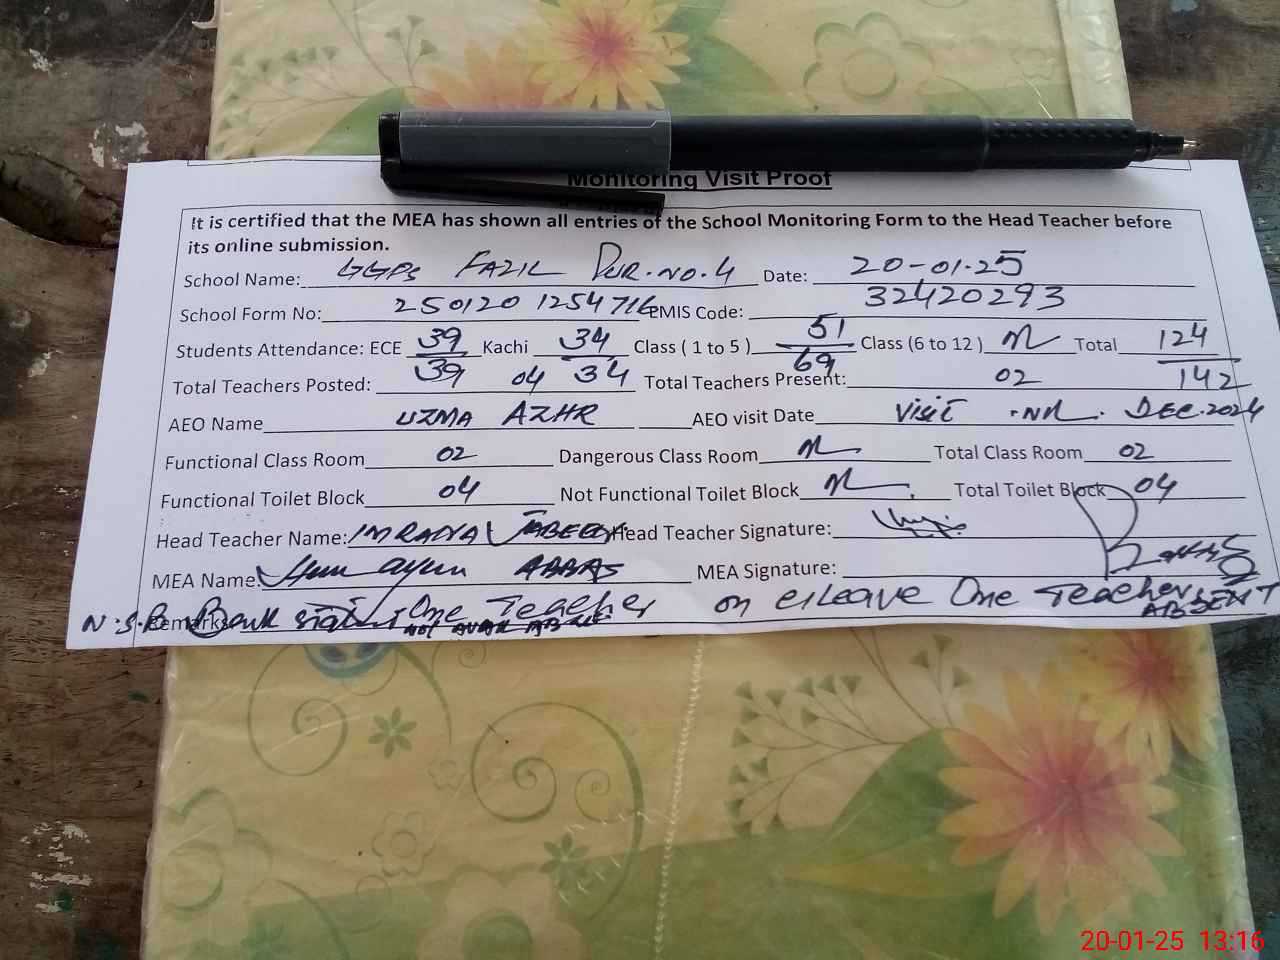 Monitoring Visit Proof
It is certified that the MEA has shown all entries of the School Monitoring Form to the Head Teacher before
its online submission.
School Name: GGPS FAZIL PUR.NO.4 Date: 20-01-25
School Form No: 250120 1254716 EMIS Code: 32420293
Students Attendance: ECE 39/39 Kachi 34/34 Class ( 1 to 5 ) 51/69 Class (6 to 12 ) Total 124/142
Total Teachers Posted: 04 Total Teachers Present: 02
AEO Name UZMA AZHR AEO visit Date visit NR. DEC.2024
Functional Class Room 02 Dangerous Class Room Total Class Room 02
Functional Toilet Block 04 Not Functional Toilet Block Total Toilet Block 04
Head Teacher Name: IMRANA JABEEN Head Teacher Signature:
MEA Name: Humayun ABBAS MEA Signature:
Remarks N.S.B Bank One Teacher on eLeave One Teacher
NOT AVAILABLE ABSENT
20-01-25 13:16